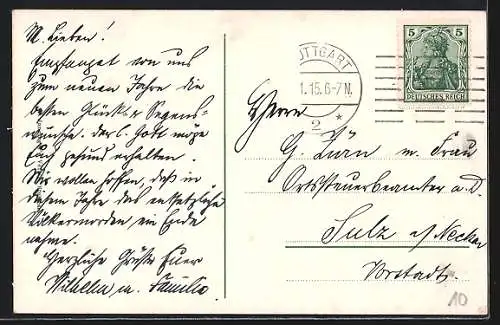 M. Lieben!
Empfanget von uns
zum neuen Jahre die
besten Glück- u. Segens-
wünsche. Der l. Gott möge
Euch gesund erhalten.
Wir wollen hoffen, daß in
diesem Jahre das entsetzliche
Völkermorden ein Ende
nehme.
Herzliche Grüße Euer
Wilhelm u. Familie.
TUTTGART
1.15.6-7N.
2 *
5 5
DEUTSCHES REICH
Herrn
G. Zürn m. Frau
Ortssteuerbeamter a. D.
Sulz a/Neckar
Vorstadt.
10